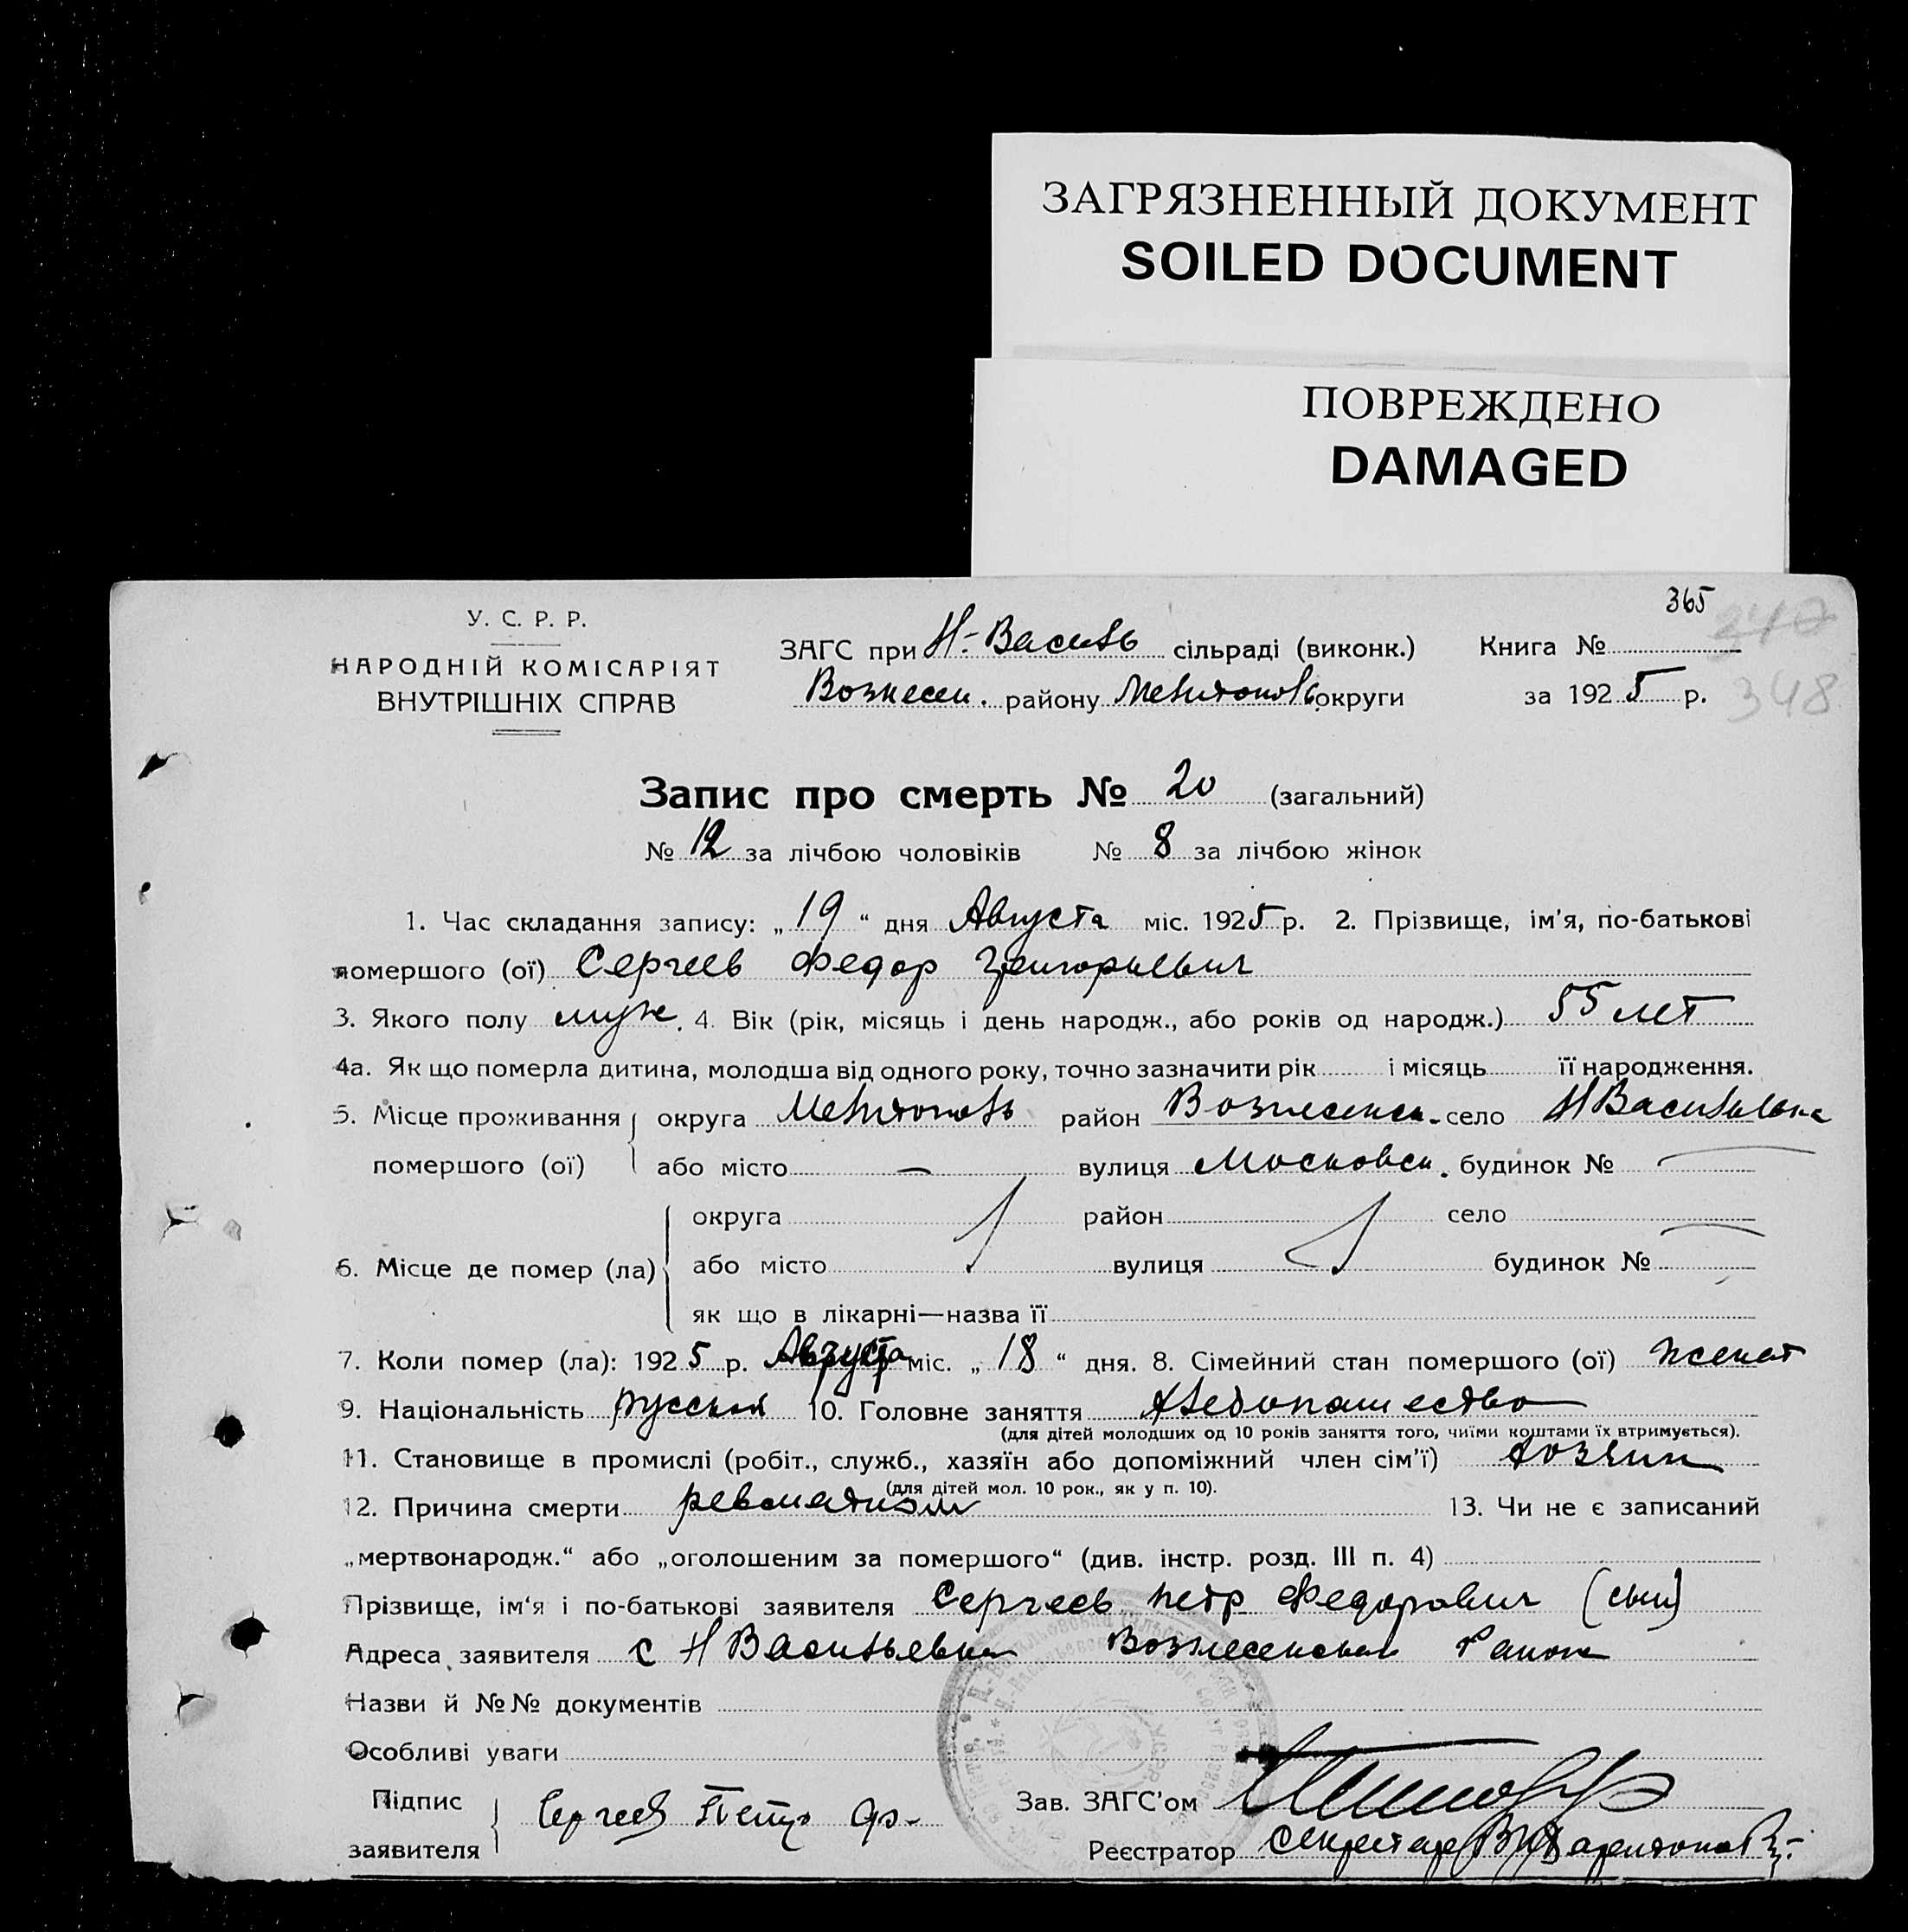 ЗАГРЯЗНЕННЫЙ ДОКУМЕНТ
SOILED DOCUMENT
ПОВРЕЖДЕНО
DAMAGED
365
У. С. Р. Р.
НАРОДНІЙ КОМІСАРІЯТ
ВНУТРІШНІХ СПРАВ
ЗАГС при Н-Василь сільраді (виконк.) Книга № 347
Вознесен. району Мелитополь округи за 1925 р. 348
Запис про смерть № 20 (загальний)
№ 12 за лічбою чоловіків № 8 за лічбою жінок
1. Час складання запису: „19“ дня Августа міс. 1925 р. 2. Прізвище, ім'я, по-батькові
помершого (ої) Сергеев Федор Григорьевич
3. Якого полу муж. 4. Вік (рік, місяць і день народж., або років од народж.) 55 лет
4а. Як що померла дитина, молодша від одного року, точно зазначити рік і місяць її народження.
5. Місце проживання округа Мелитополь район Вознесенск. село Н Васильевка
помершого (ої) або місто — вулиця Московск. будинок № —
округа район село
6. Місце де помер (ла) або місто вулиця будинок № —
як що в лікарні—назва її
7. Коли помер (ла): 1925 р. Августа міс. „18“ дня. 8. Сімейний стан помершого (ої) женат
9. Національність русский 10. Головне заняття хлебопашество
(для дітей молодших од 10 років заняття того, чиїми коштами їх втримується).
11. Становище в промислі (робіт., служб., хазяїн або допоміжний член сім'ї) хозяин
(для дітей мол. 10 рок., як у п. 10).
12. Причина смерти ревматизм 13. Чи не є записаний
„мертвонародж.“ або „оголошеним за помершого“ (див. інстр. розд. III п. 4)
Прізвище, ім'я і по-батькові заявителя Сергеев Петр Федорович (сын)
Адреса заявителя с Н Васильевка Вознесенский Район
Назви й №№ документів
Особливі уваги
Підпис заявителя Сергеев Петр Фр-
Зав. ЗАГС'ом
Реєстратор секретарь